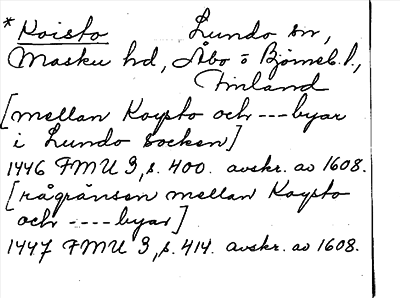 * Koisto Lundo sn,
Masku hd, Åbo o Björneb. l.,
Finland
[mellan Koysto och ---byar
i Lundo socken]
1446 FMU 3, s. 400. avskr. av 1608.
[rågränsen mellan Koysto
och ----byar]
1447 FMU 3, s. 414. avskr. av 1608.